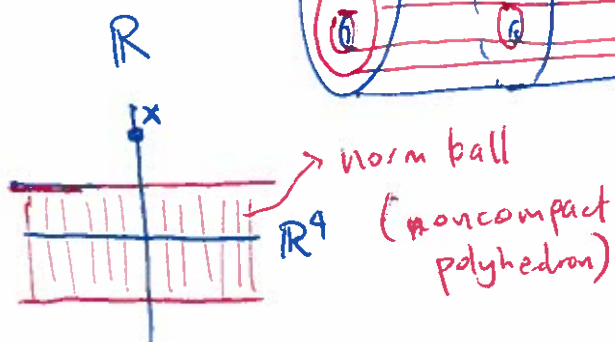 ℝ
x
norm ball
ℝ⁴
(noncompact
polyhedron)